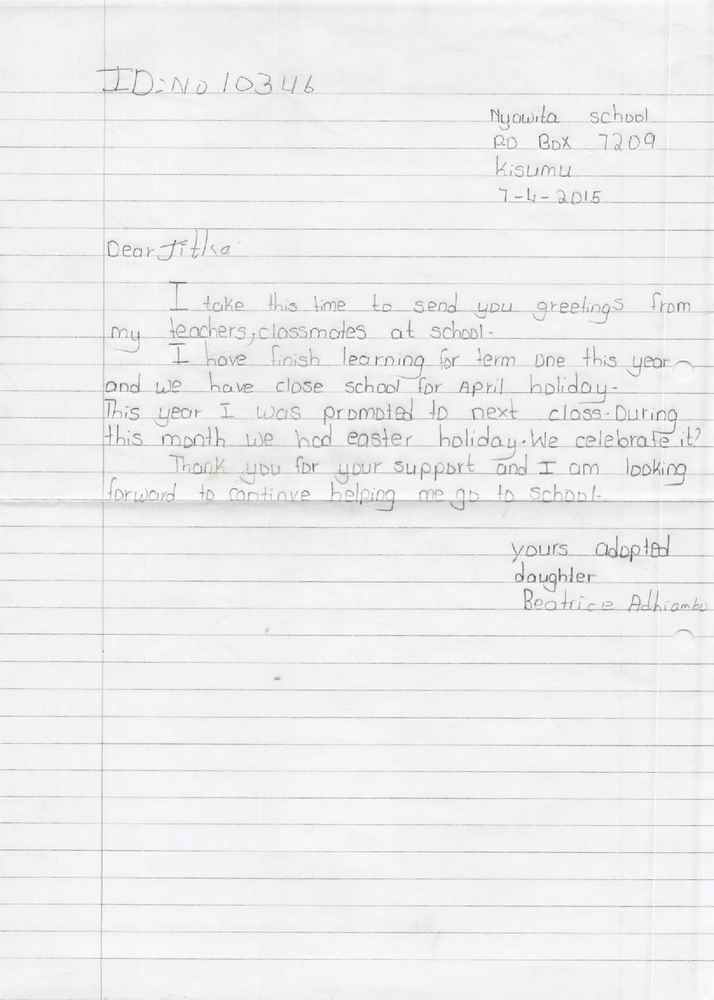 ID:No 10346
Nyawita school
PO Box 7209
Kisumu
7-4-2015
Dear Jitka
I take this time to send you greetings from
my teachers, classmates at school.
I have finish learning for term one this year
and we have close school for April holiday.
This year I was promoted to next class. During
this month we had easter holiday. We celebrate it?
Thank you for your support and I am looking
forward to continue helping me go to school.
yours adopted
daughter
Beatrice Adhiambo